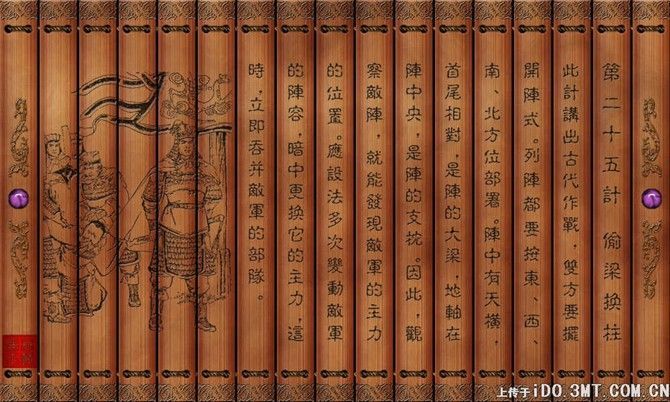 第二十五計　偷梁換柱
此計講出古代作戰，雙方要擺
開陣式。列陣都要按東、西、
南、北方位部署。陣中有天橫，
首尾相對，是陣的大梁，地軸在
陣中央，是陣的支抗。因此，觀
察敵陣，就能發現敵軍的主力
的位置。應設法多次變動敵軍
的陣容，暗中更換它的主力，這
時，立即吞并敵軍的部隊。
上传于iDO.3MT.COM.CN